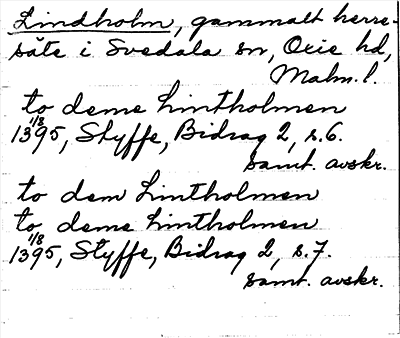 Lindholm, gammalt herre-
säte i Svedala sn, Oxie hd,
Malm.l.
to deme Lintholmen
1/8
1395, Styffe, Bidrag 2, s.6.
samt. avskr.
to dem Lintholmen
to deme Lintholmen
1/8
1395, Styffe, Bidrag 2, s.7.
samt. avskr.